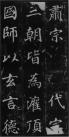 肅宗代宗
三朝皆為灌頂
國師以玄言德